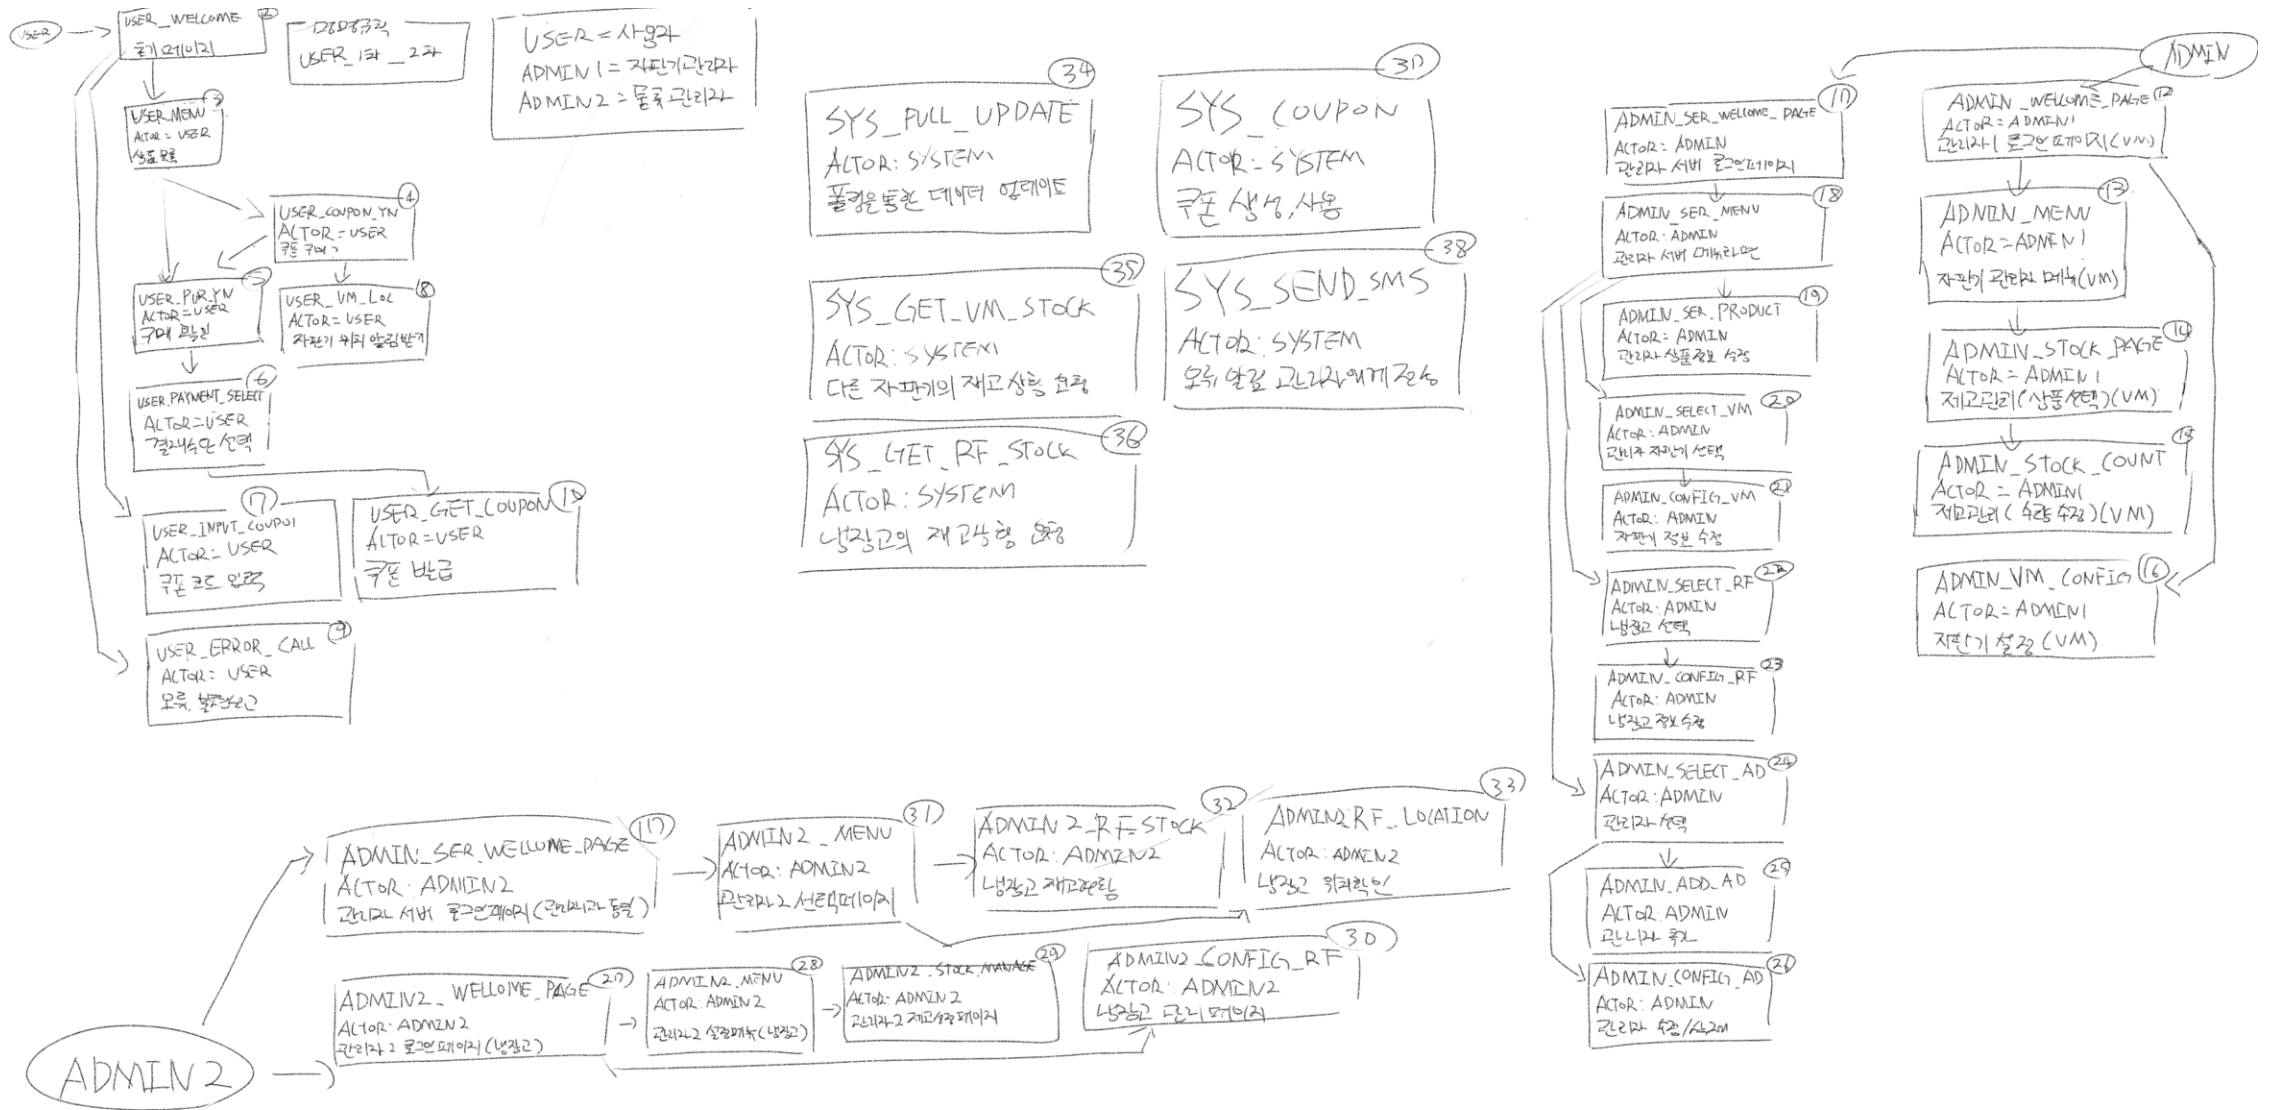 USER
USER_WELCOME
2
초기 페이지
명명규칙
USER_1차__2차
USER = 사용자
ADMIN1 = 자판기관리자
ADMIN2 = 물류관리자
USER_MENU
3
ACTOR = USER
상품 목록
USER_COUPON_YN
4
ACTOR = USER
쿠폰 구매?
USER_PUR_YN
5
ACTOR = USER
구매 확인
USER_VM_LOC
8
ACTOR = USER
자판기 위치 알림받기
USER_PAYMENT_SELECT
6
ACTOR = USER
결제수단 선택
USER_INPUT_COUPON
ACTOR = USER
쿠폰 코드 입력
USER_GET_COUPON
10
ACTOR = USER
쿠폰 발급
USER_ERROR_CALL
9
ACTOR = USER
오류, 불편신고
34
SYS_PULL_UPDATE
ACTOR: SYSTEM
풀링을통한 데이터 업데이트
37
SYS_COUPON
ACTOR = SYSTEM
쿠폰 생성, 사용
35
SYS_GET_VM_STOCK
ACTOR: SYSTEM
다른 자판기의 재고상황 요청
38
SYS_SEND_SMS
ACTOR: SYSTEM
오류 알림 관리자에게 전송
36
SYS_GET_RF_STOCK
ACTOR: SYSTEM
냉장고의 재고상황 요청
ADMIN
17
ADMIN_SER_WELLOME_PAGE
ACTOR = ADMIN
관리자 서버 로그인페이지
18
ADMIN_SER_MENU
ACTOR: ADMIN
관리자 서버 메뉴화면
19
ADMIN_SER_PRODUCT
ACTOR = ADMIN
관리자 상품정보 수정
20
ADMIN_SELECT_VM
ACTOR: ADMIN
관리자 자판기 선택
21
ADMIN_CONFIG_VM
ACTOR: ADMIN
자판기 정보 수정
22
ADMIN_SELECT_RF
ACTOR: ADMIN
냉장고 선택
23
ADMIN_CONFIG_RF
ACTOR: ADMIN
냉장고 정보수정
24
ADMIN_SELECT_AD
ACTOR: ADMIN
관리자 선택
25
ADMIN_ADD_AD
ACTOR: ADMIN
관리자 추가
26
ADMIN_CONFIG_AD
ACTOR: ADMIN
관리자 수정/삭제
ADMIN_WELLOME_PAGE
12
ACTOR = ADMIN1
관리자1 로그인페이지(VM)
13
ADMIN_MENU
ACTOR = ADMIN1
자판기 관리자 메뉴(VM)
14
ADMIN_STOCK_PAGE
ACTOR = ADMIN1
재고관리(상품선택)(VM)
15
ADMIN_STOCK_COUNT
ACTOR = ADMIN1
재고관리(수량수정)(VM)
ADMIN_VM_CONFIG
16
ACTOR = ADMIN1
자판기 설정(VM)
17
ADMIN_SER_WELLOME_PAGE
ACTOR: ADMIN2
관리자 서버 로그인페이지(관리자1과 동일)
31
ADMIN2_MENU
ACTOR: ADMIN2
관리자2 선택페이지
32
ADMIN2_RF_STOCK
ACTOR: ADMIN2
냉장고 재고현황
33
ADMIN2_RF_LOCATION
ACTOR: ADMIN2
냉장고 위치확인
ADMIN2
27
ADMIN2_WELLOME_PAGE
ACTOR: ADMIN2
관리자2 로그인페이지(냉장고)
28
ADMIN2_MENU
ACTOR: ADMIN2
관리자2 설정메뉴(냉장고)
29
ADMIN2_STOCK_MANAGE
ACTOR: ADMIN2
관리자2 재고설정페이지
30
ADMIN2_CONFIG_RF
ACTOR: ADMIN2
냉장고 관리 페이지